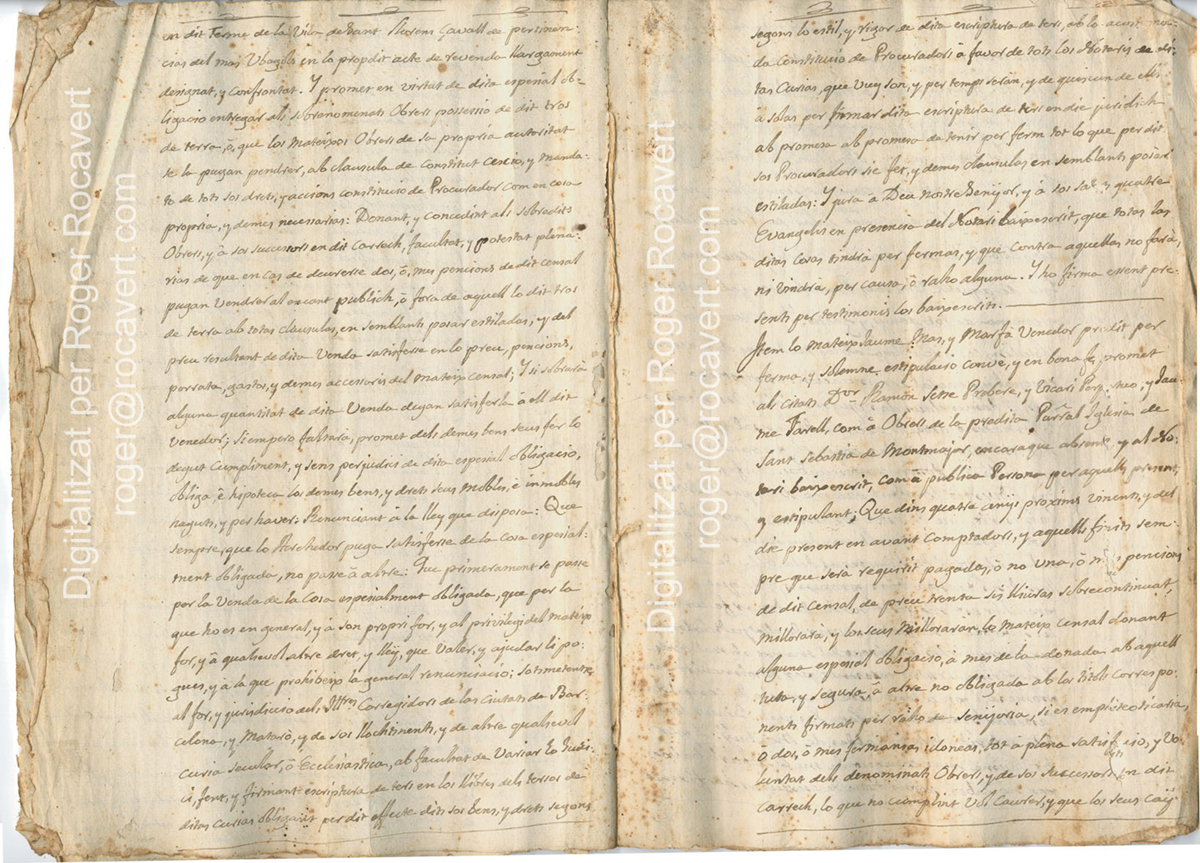 en dit Terme de la Vila de Sant Llorens Çavall de pertinen-
cias del mas Ubagols en lo propdit acte de revenda llargament
designat, y confrontat. Y promet en virtut de dita espesial ob-
ligacio entregar als sobrenomenats Obrers possessio de dit tros
de terra ó, que los Mateixos Obrers de sa propria autoritat
se la pugan pendrer, ab clausula de Constitut Cessio, y manda-
to de tots sos drets, y accions constitucio de Procurador com en cosa
propria, y demes necessarias: Donant, y concedint als sobredits
Obrers, y á sos successors en dit Carrech, facultat, y potestat plena-
rias de que en cas de deurerse dos, ó, mes pencions de dit censal
pugan Vendrer al encant publich, ó fora de aquell lo dit tros
de terra ab totas clausulas, en semblants posar estiladas, y del
preu resultant de dita Venda satisferse en lo preu, pencions,
porrata, gastos, y demes accessoris del mateix censal; Y si sobrará
alguna quantitat de dita Venda degan satisferla á ell dit
Venedor; Si empero faltará, promet dels demes bens seus fer lo
degut Cumpliment, y sens perjudici de dita espesial obligacio,
obliga, é hipoteca los demes bens, y drets seus mobles, é immobles
haguts, y per haver; Renunciant á la lley que disposa: Que
sempre, que lo Acrehedor puga satisferse de la cosa espesial-
ment obligada, no passe á altre: Que primerament se passe
per la Venda de la Cosa espesialment obligada, que per la
que ho es en general, y á son propri for, y al privilegi del mateix
for, y á qualsevol altre dret, y lley, que Valer, y ajudar li po-
gues, y á la que prohibeix la general renunciacio; sotmetentse
al for, y jurisdiccio dels Illtres Corregidors de las Ciutats de Bar-
celona, y Mataró, y de sos llochtinents, y de altre qualsevol
curia secular, ó Ecclesiastica, ab facultat de Variar lo Judi-
ci, fent, y firmant escriptura de ters en los llibres dels tersos de
ditas Curias obligant per dit effecte dits sos bens, y drets segons
segons lo estil, y rigor de dita escriptura de ters, ab la acostuma-
da Constitucio de Procuradors á favor de tots los Notaris de di-
tas Curias, que Vuy son, y per temps serán, y de quiscun de ells
á solas per firmar dita escriptura de ters en die juridich
ab promesa ab promesa de tenir per ferm tot lo que per dit
sos Procuradors sie fet, y demes clausulas en semblants posar
estiladas: Y jura á Deu nostre Senyor, y á sos sants quatre
Evangelis en presencia del Notari baixescrit, que totas las
ditas Cosas tindrá per fermas, y que contra aquellas no fará,
ni vindra, per causa, ó raho alguna. Y ho firma essent pre-
sents per testimonis los baixescrits.
Item lo mateix Jaume Mas, y Marfá Venedor predit per
ferma, y solemne estipulacio convé, y en bona fe, promet
als citats Dor Ramon Serre Prebere, y Vicari Perpetuo, y Jau-
me Farell, com á Obrers de la predita Parral Iglesia de
Sant Sebastia de Montmajor, encara que absents, y al No-
tari baixescrit, com á publica Persona per aquells present,
y estipulant; Que dins quatre anys proxims vinents, y del
die present en avant comptadors, y aquells finits sem-
pre que será requirit pagadas, ó no una, ó pencions
de dit Censal, de preu trenta sis lliuras sobrecontinuat,
millorará, y los seus milloraran, lo mateix censal donant
alguna espesial obligacio, á mes de la donada ab aquell
tuta, y segura, á altre no obligada ab los titols correspo-
nents firmats per raho de Senyoria, si es emphiteoticaria,
ó dos, ó mes fermansas idoneas, tot á plena satisfaccio, y Vo-
luntat dels denominats Obrers, y de sos successors en dit
carrech, lo que no cumplint Vol caurer, y que los seus caÿ
Digitalitzat per Roger Rocavert
roger@rocavert.com
Digitalitzat per Roger Rocavert
roger@rocavert.com